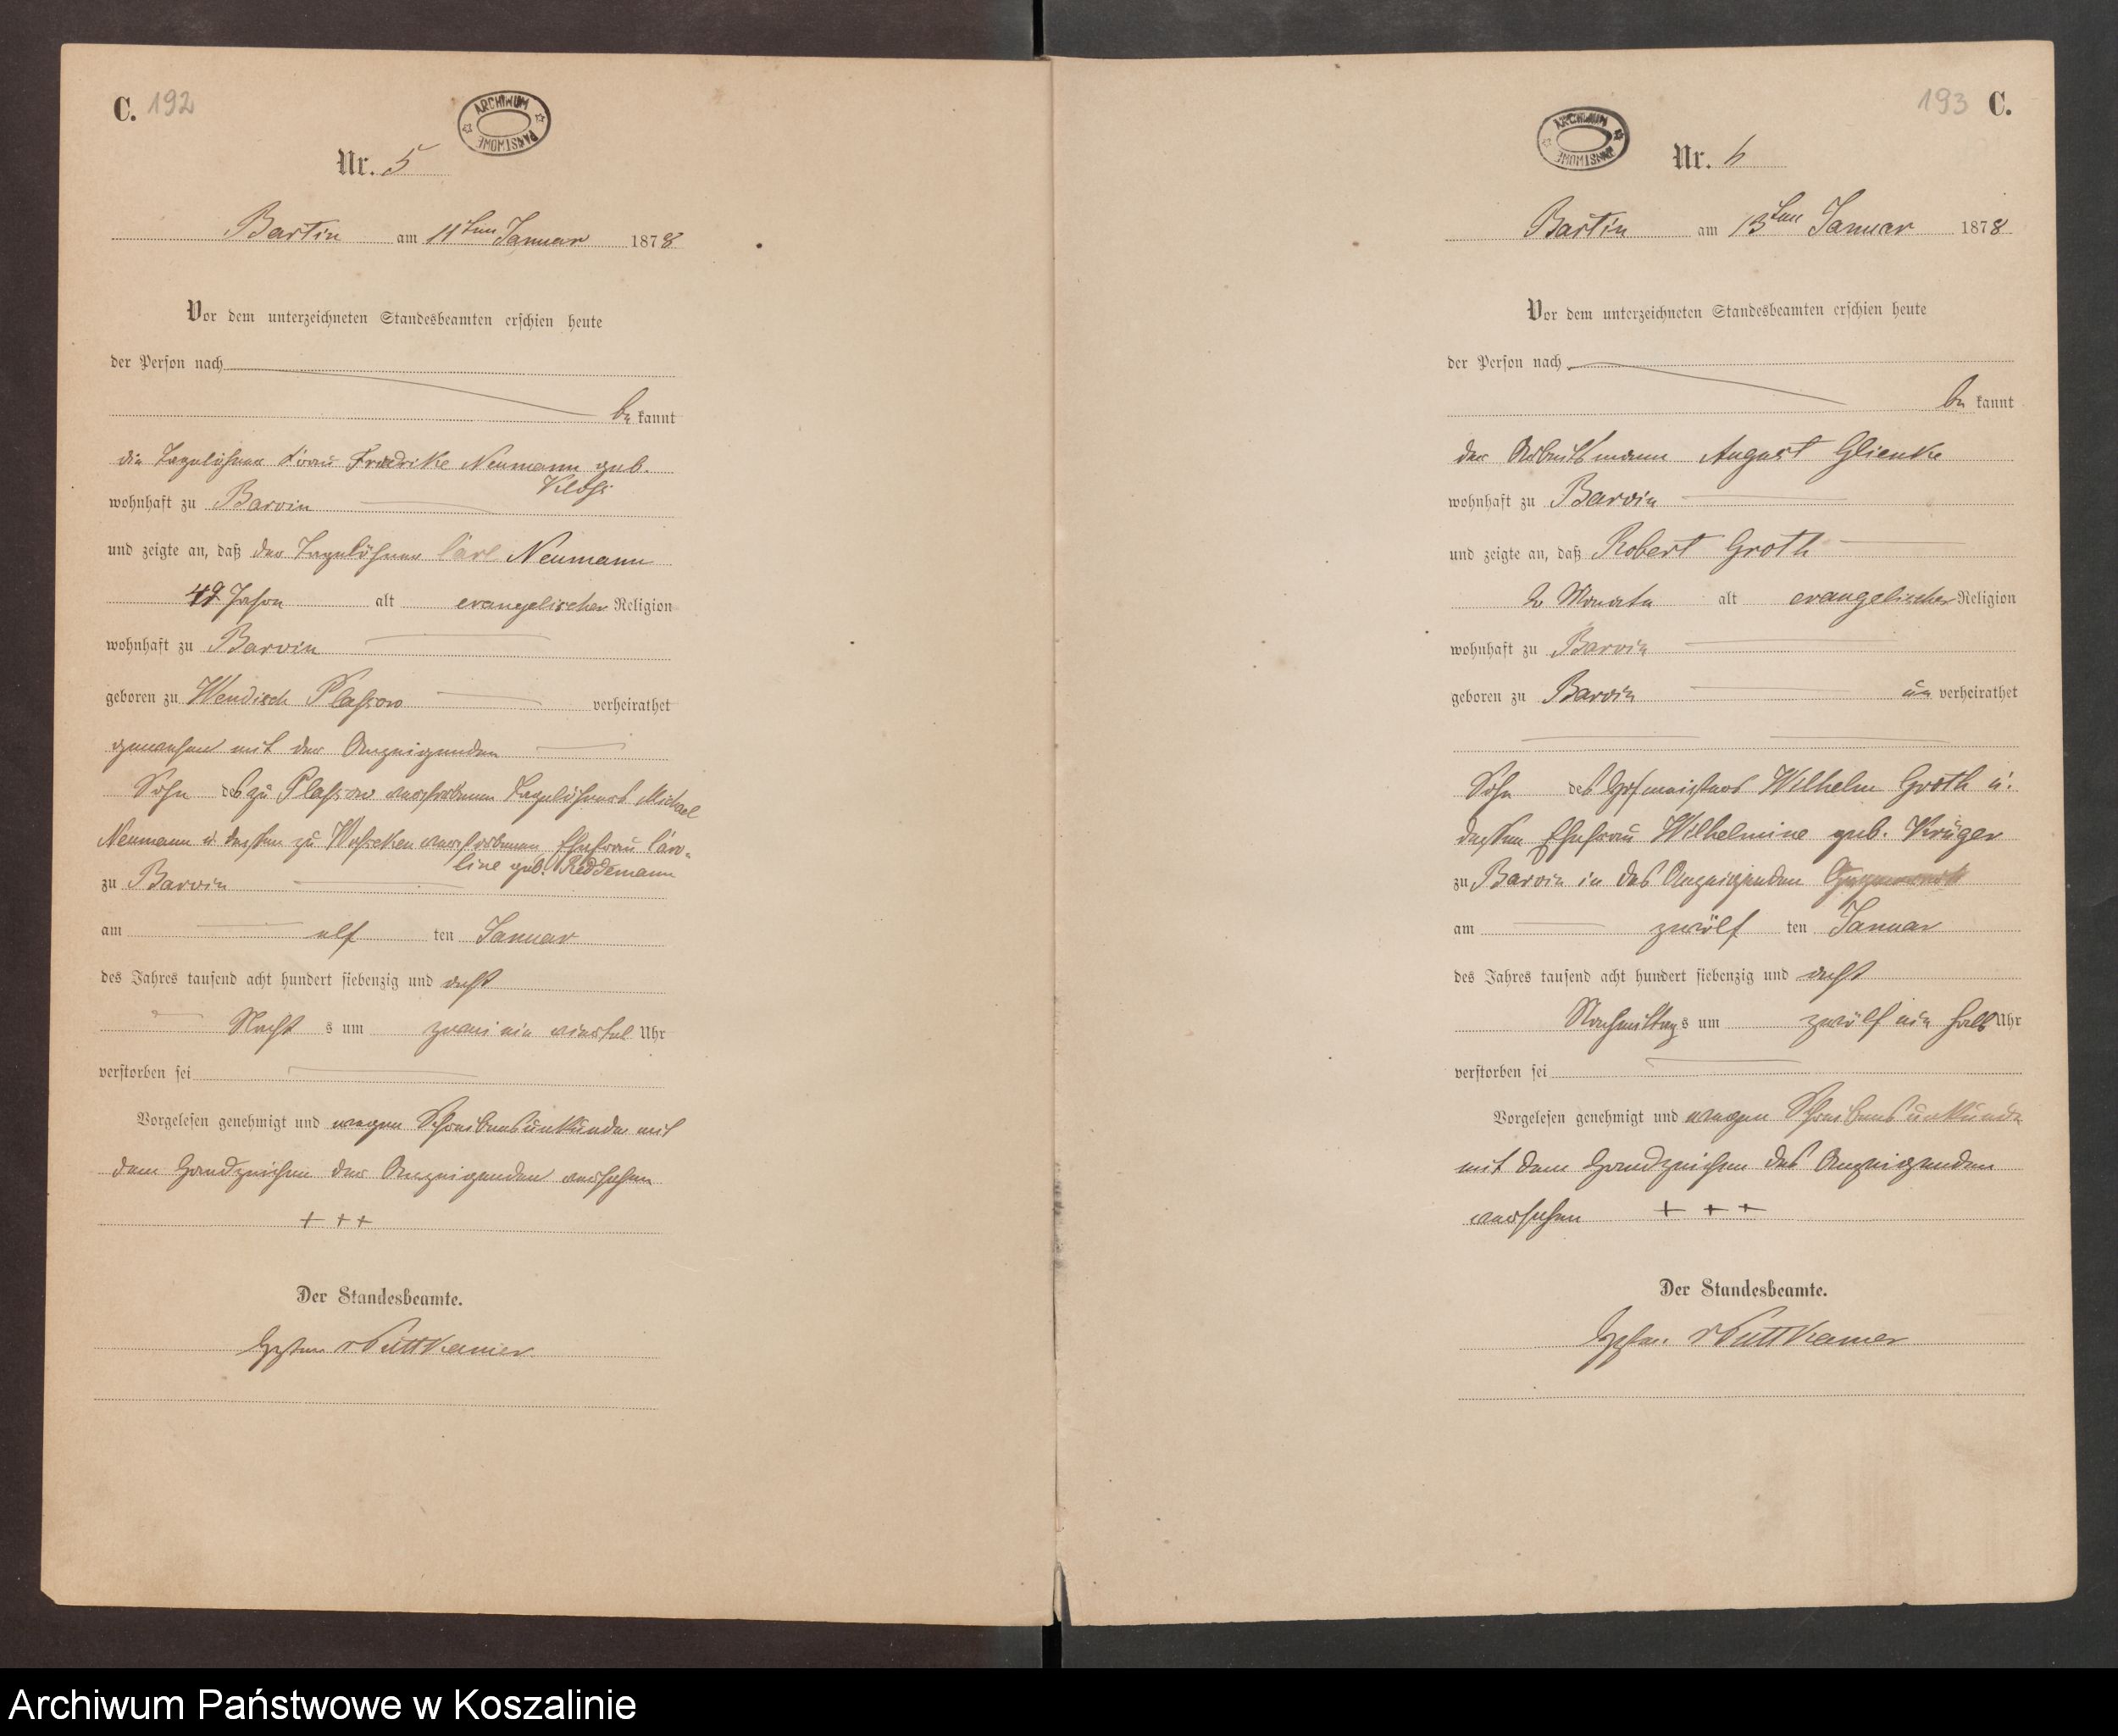 C. 192
ARCHIWUM PAŃSTWOWE
Nr. 5
Bartin am 11ten Januar 1878
Vor dem unterzeichneten Standesbeamten erschien heute
der Person nach
be kannt
die Tagelöhner Frau Friedrike Neumann geb.
wohnhaft zu Barvin
und zeigte an, daß der Tagelöhner Carl Neumann
49 Jahre alt evangelischer Religion
wohnhaft zu Barvin
geboren zu Wendisch Plassow verheirathet
gewesen mit der Anzeigenden
Sohn des zu Plassow verstorbenen Tagelöhners Michael
Neumann u. dessen zu verstorbenen Ehefrau Caro-
line geb. Reddemann
zu Barvin
am elf ten Januar
des Jahres tausend acht hundert siebenzig und acht
Nacht s um zwei ein viertel Uhr
verstorben sei
Vorgelesen genehmigt und wegen Schreibensunkunde mit
dem Handzeichen der Anzeigenden versehen
+ + +
Der Standesbeamte.
v Puttkamer
193 C.
ARCHIWUM PAŃSTWOWE
Nr. 6
Bartin am 13ten Januar 1878
Vor dem unterzeichneten Standesbeamten erschien heute
der Person nach
be kannt
der Arbeitsmann August Glienke
wohnhaft zu Barvin
und zeigte an, daß Robert Groth
2 Monate alt evangelischer Religion
wohnhaft zu Barvin
geboren zu Barvin un verheirathet
Sohn des Hofmeisters Wilhelm Groth u.
dessen Ehefrau Wilhelmine geb. Krüger
zu Barvin in des Anzeigenden Gegenwart
am zwölf ten Januar
des Jahres tausend acht hundert siebenzig und acht
Nachmittag s um zwölf ein halb Uhr
verstorben sei
Vorgelesen genehmigt und wegen Schreibensunkunde
mit dem Handzeichen des Anzeigenden
versehen + + +
Der Standesbeamte.
v Puttkamer
Archiwum Państwowe w Koszalinie